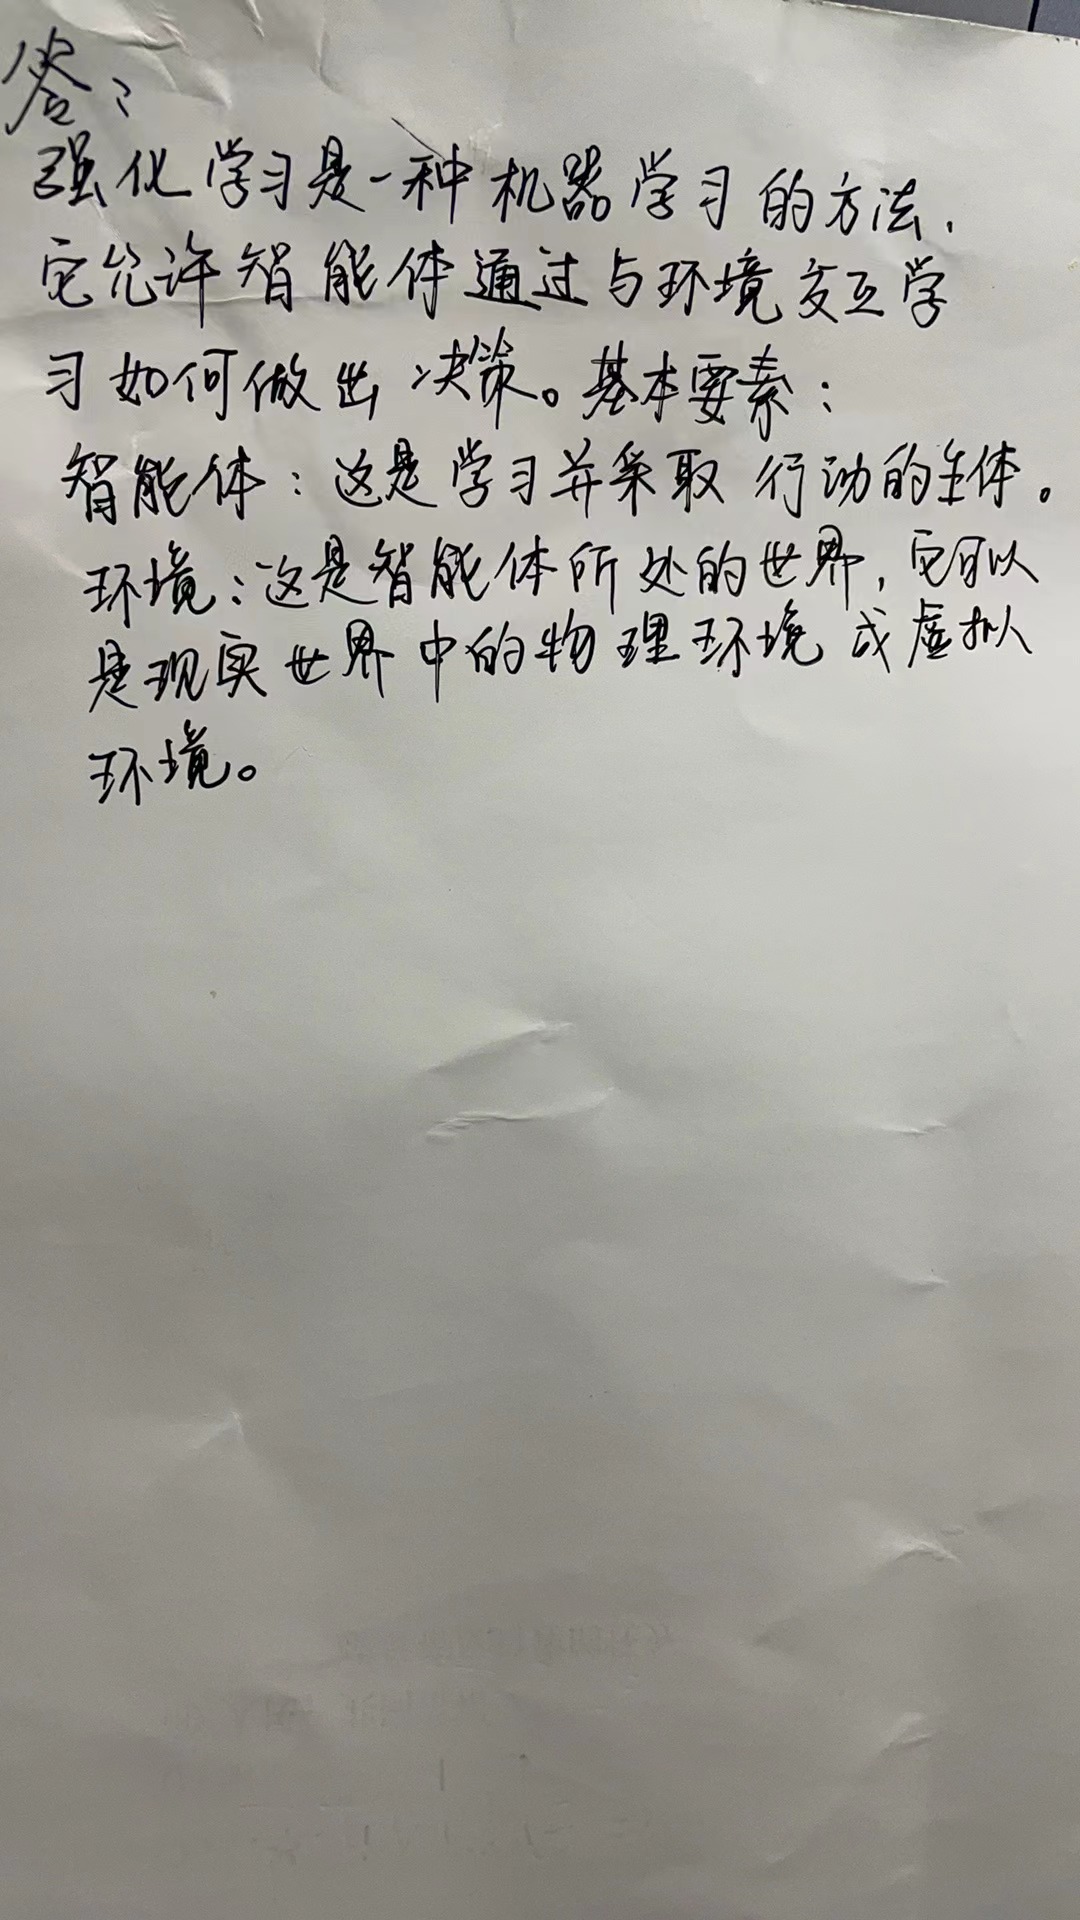 答：
强化学习是一种机器学习的方法，
它允许智能体通过与环境交互学
习如何做出决策。基本要素：
智能体：这是学习并采取行动的主体。
环境：这是智能体所处的世界，它可以
是现实世界中的物理环境或虚拟
环境。